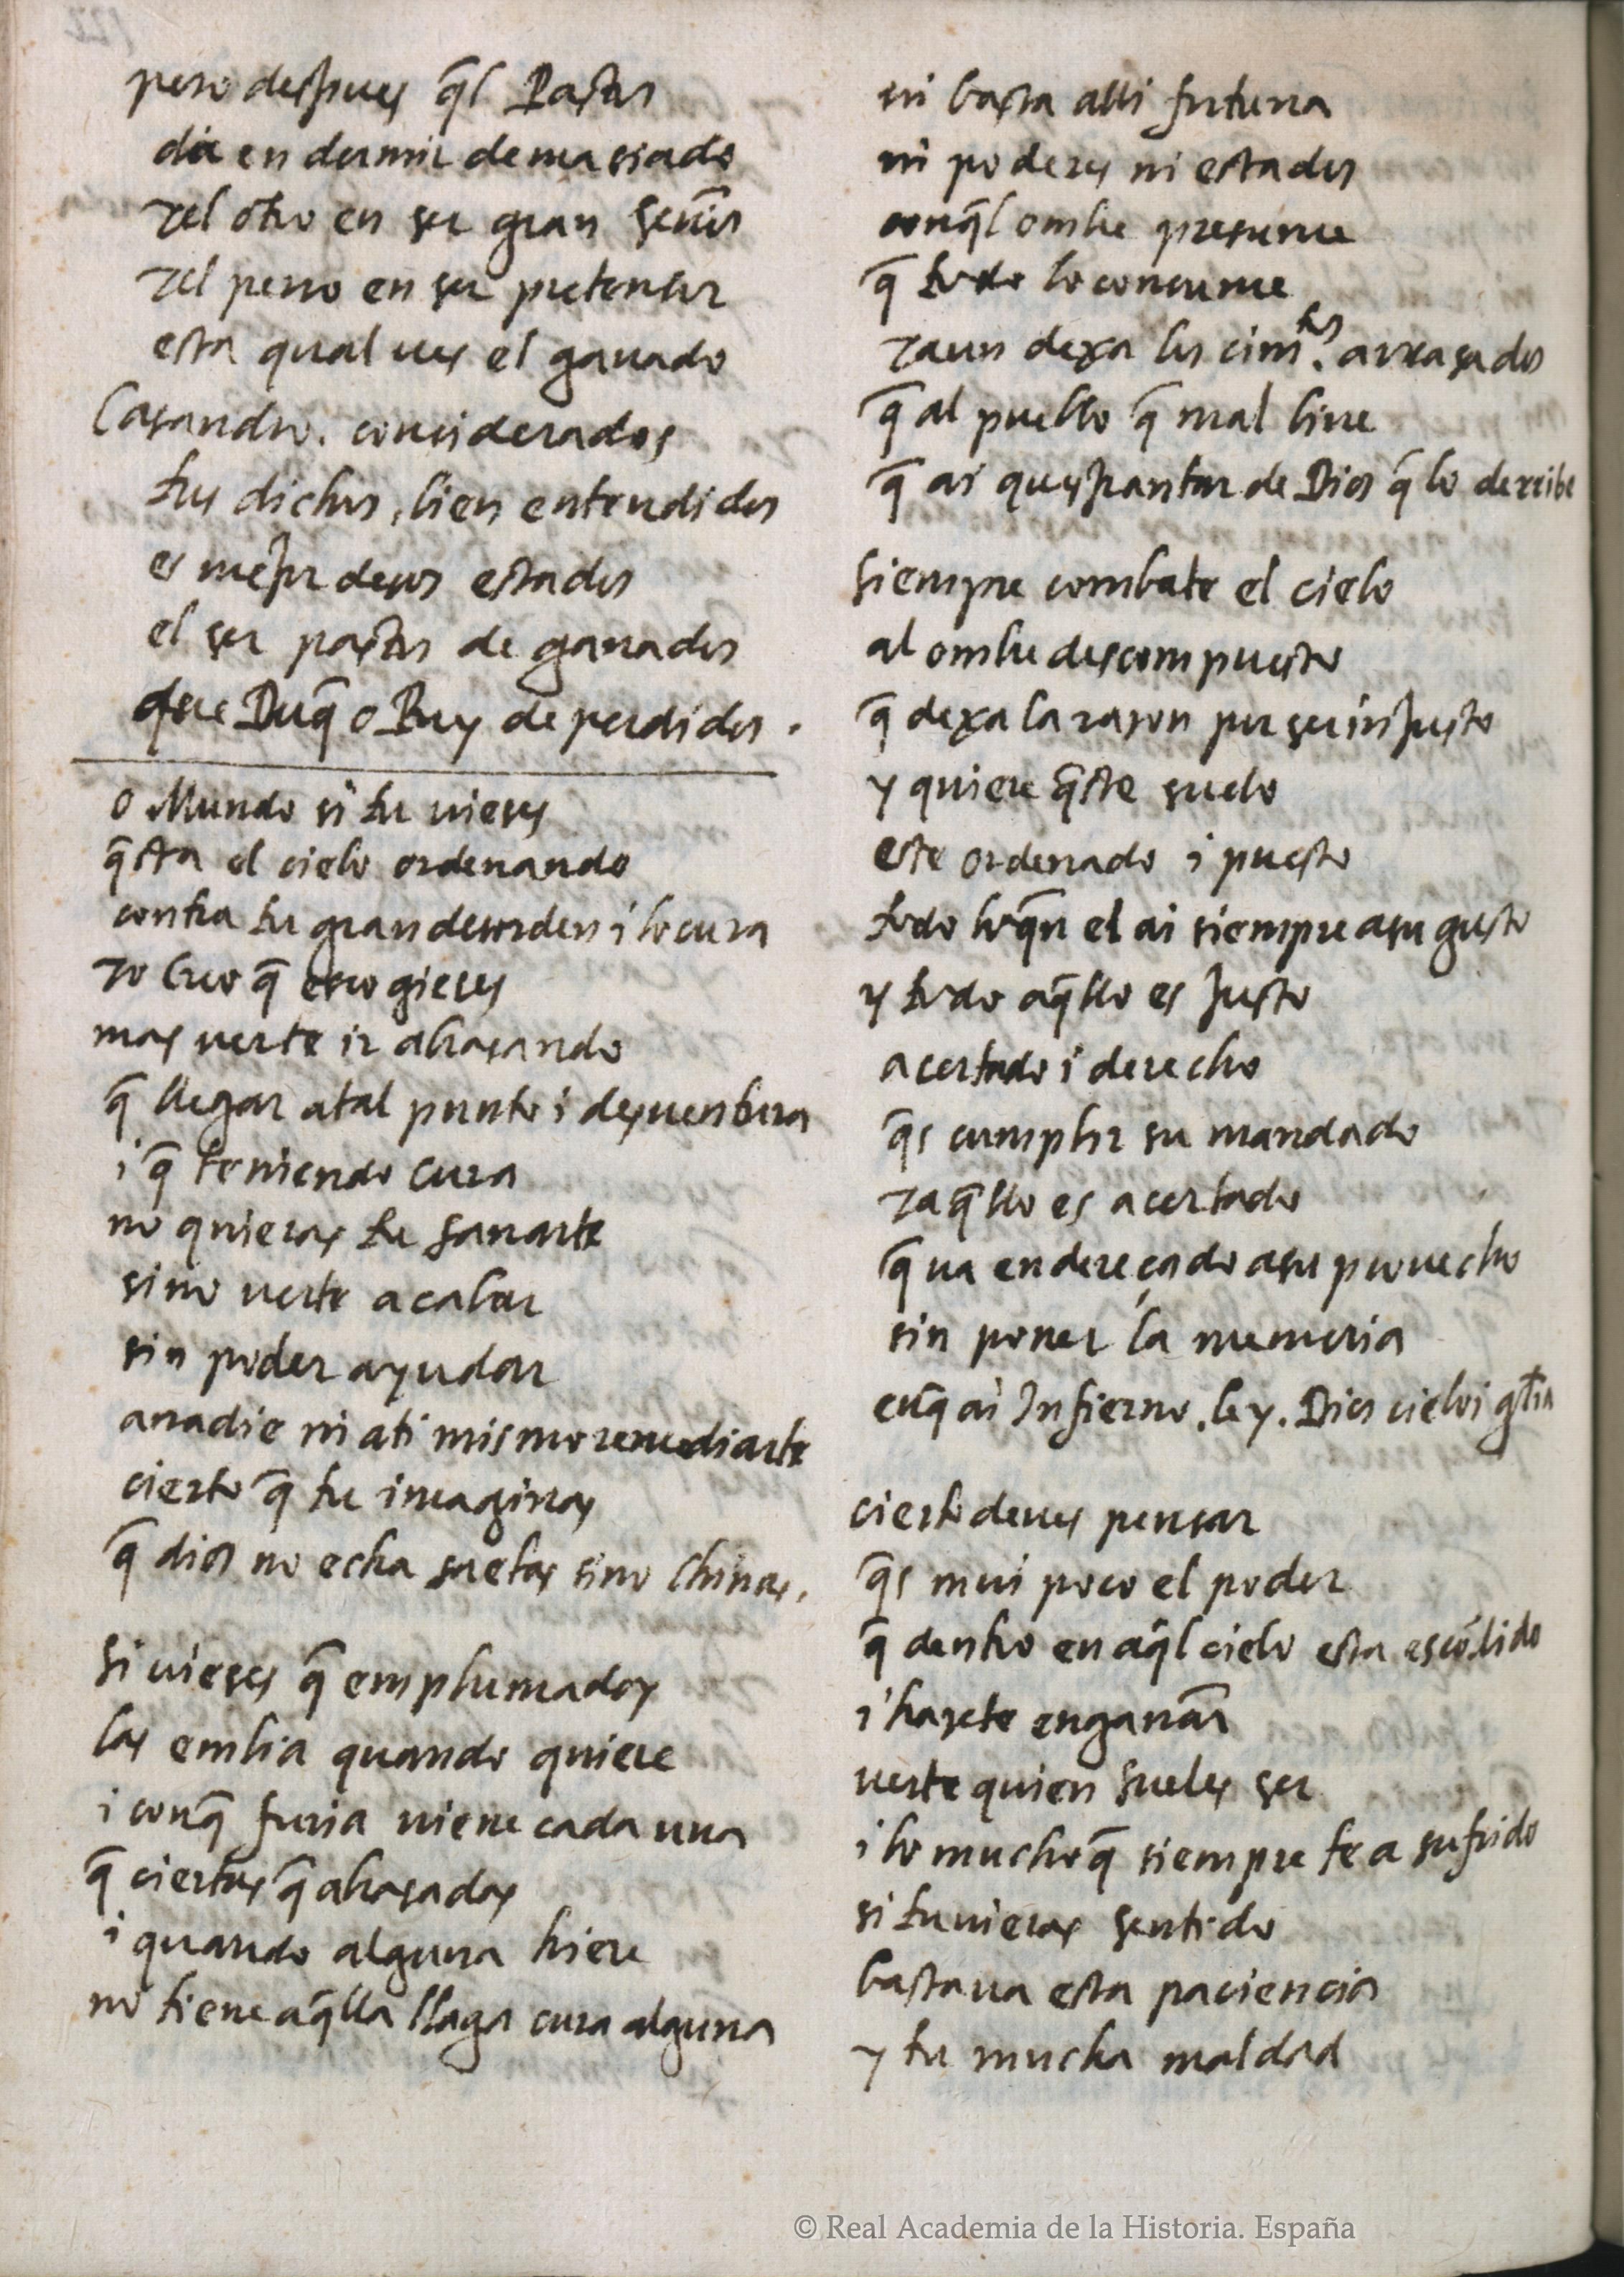 pero despues q̃l Pastor
da en dormir demasiado
y el otro en ser gran Señor
y el perro en ser pretensor
esta qual ves el ganado
Casandro. considerados
tus dichos, bien entendidos
es mejor desos estados
el ser pastor de ganados
que Duq̃ o Rey de perdidos.
o Mundo si tu vieses
q̃sta el cielo ordenando
contra tu gran desorden i locura
yo creo q̃ escogieses
mas verte ir abrasando
q̃ llegar atal punto i desventura
i q̃ teniendo cura
no quieras tu sanarte
sino verte acabar
sin poder ayudar
anadie ni ati mismo remediarte
cierto q̃ tu imaginas
q̃ dios no echa saetas sino chinas.
Si vieses q̃ emplumadas
las embia quando quiere
i conq̃ furia viene cada una
q̃ ciertas q̃ abrasadas
i quando alguna hiere
no tiene aq̃lla llaga cura alguna
ni basta alli fortuna
ni poderes ni estados
conq̃l ombre presume
q̃ todo lo consume
y aun dexa los cim.tos arrasados
q̃ al pueblo q̃ mal bive
q̃ ai quespantar de Dios q̃ lo derribe
Siempre combate el cielo
al ombre descompuesto
q̃ dexa la rason por ser injusto
y quiere q̃ste suelo
este ordenado i puesto
todo loq̃n el ai siempre asu gusto
y todo aq̃llo es justo
acertado i derecho
q̃s cumplir su mandado
y aq̃llo es acertado
q̃ va endereçado asu provecho
sin poner la memoria
enq̃ ai Infierno. ley. Dios cielo i glria
cierto deves pensar
q̃s mui poco el poder
q̃ dentro en aq̃l cielo esta escõdido
i hasete engañar
verte quien sueles ser
i lo mucho q̃ siempre te a sufrido
si tuvieras sentido
bastava esta paciencia
y tu mucha maldad
© Real Academia de la Historia. España